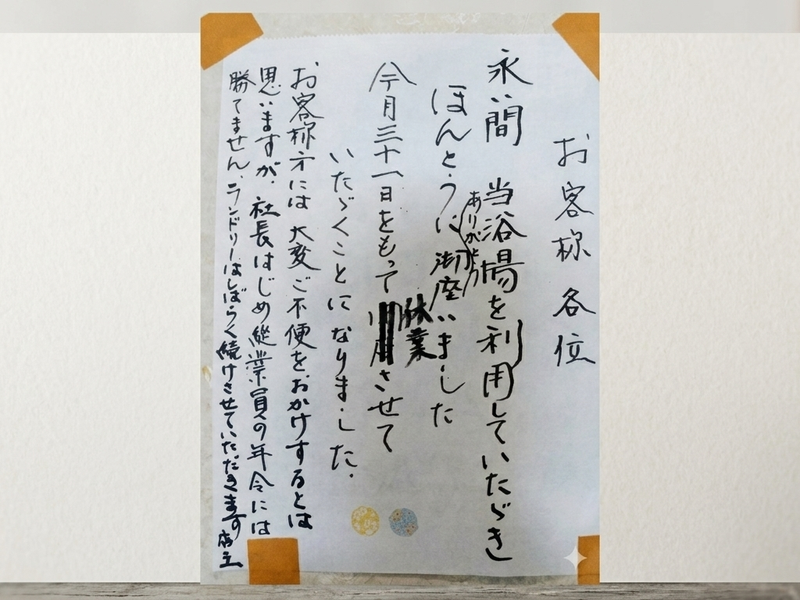 お客様各位
永い間 当浴場を利用していたゞき
ほんとうにありがとう御座いました
今月三十一日をもって休業させて
いたゞくことになりました.
お客様方には大変ご不便をおかけするとは
思いますが、社長はじめ縦業員の年令には
勝てません、ランドリーはしばらく続けさせていただきます 店主